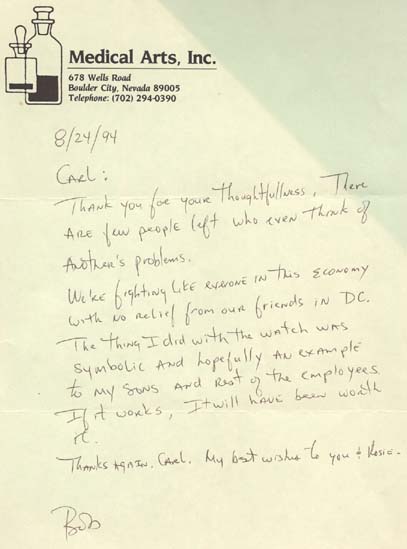 Medical Arts, Inc.
678 Wells Road
Boulder City, Nevada 89005
Telephone: (702) 294-0390
8/24/94
Carl:
Thank you for your thoughtfullness. There
are few people left who even think of
another's problems.
We're fighting like everone in this economy
with no relief from our friends in DC.
The thing I did with the watch was
symbolic and hopefully an example
to my sons and rest of the employees.
If it works, It will have been worth
it.
Thanks again, Carl. My best wishes to you + Rosie.
Bob